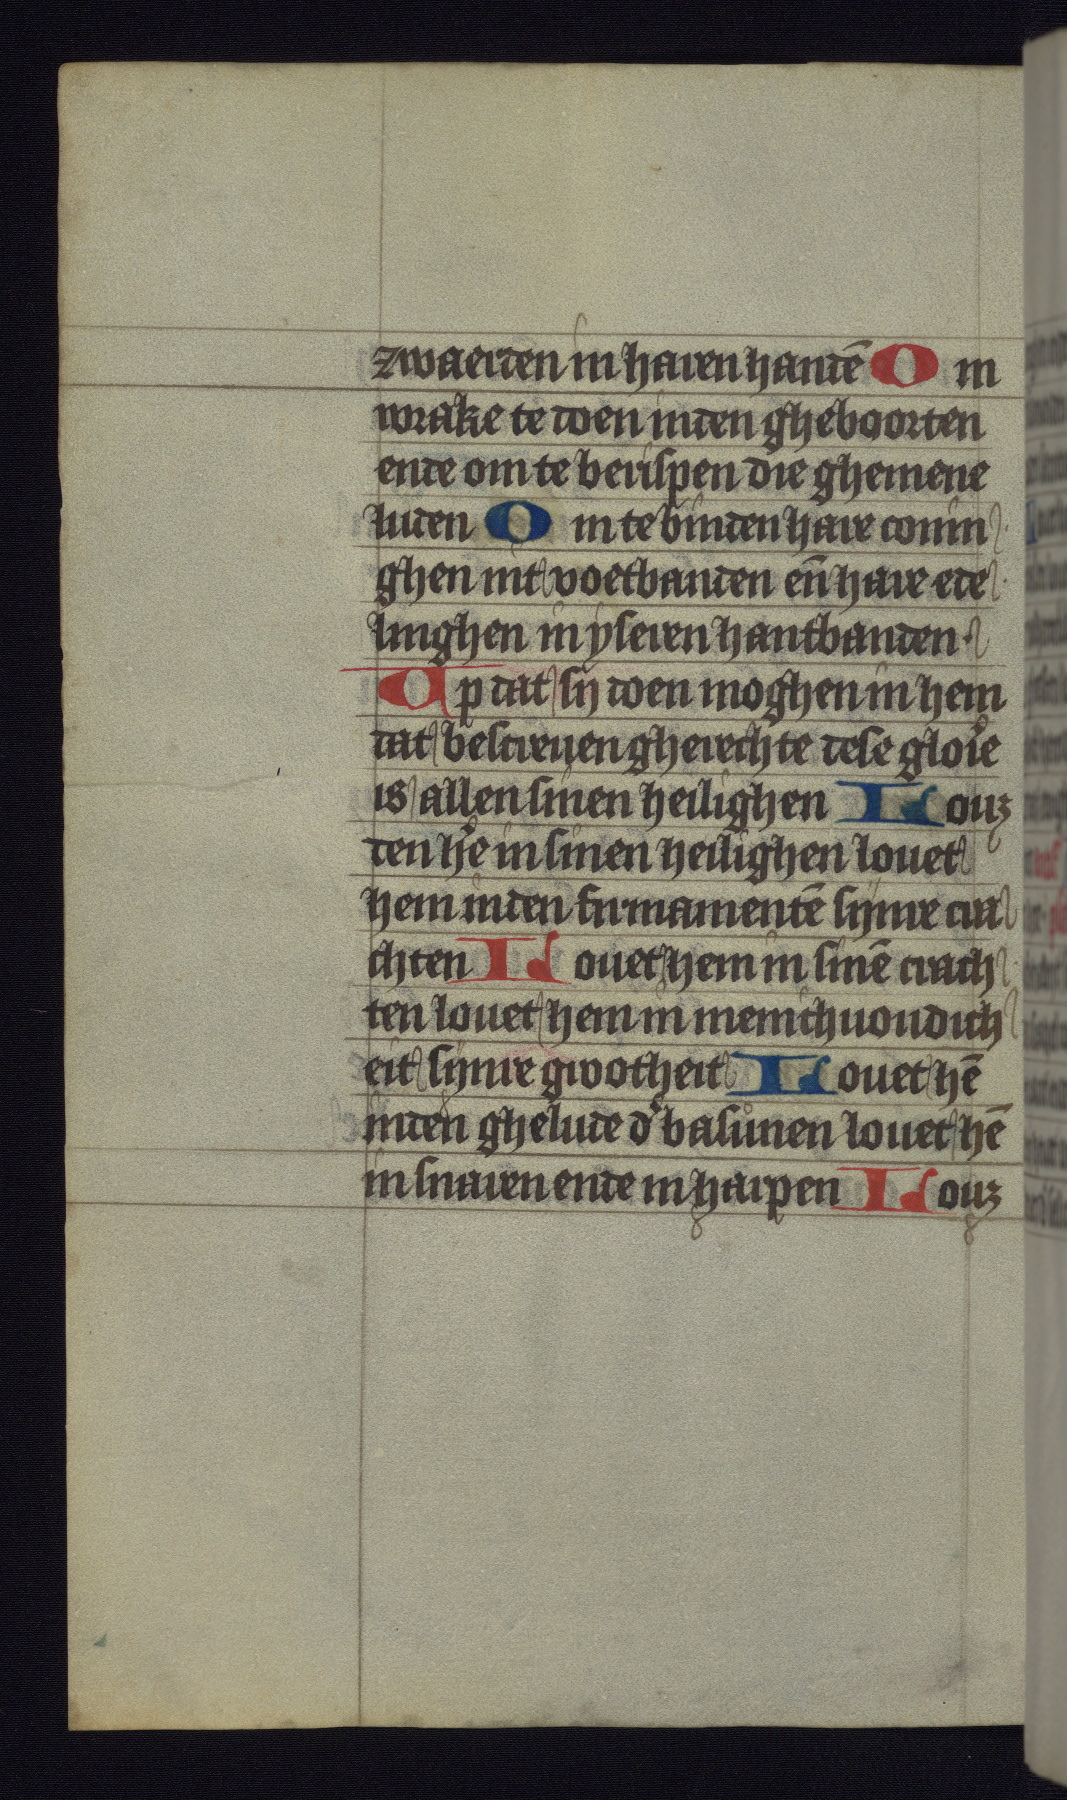 zwaerden in haren handē O m
wrake te doen inden gheboorten
ende om te berispen die ghemene
luden O m te binden hare conin
ghen mit voetbanden eñ hare ede
linghen in yseren hantbanden.
O p dat sy doen moghen in hem
dat bescreuen gherechte dese glorie
is allen sinen heilighen L ouz
den hre in sinen heilighen louet
hem inden firmamentē synre cra
chten L ouet hem in sinē crach
ten louet hem in menichuoudich
eit synre grootheit L ouet hē
inden ghelude d' basunen louet hē
in snaren ende in harpen L ouz